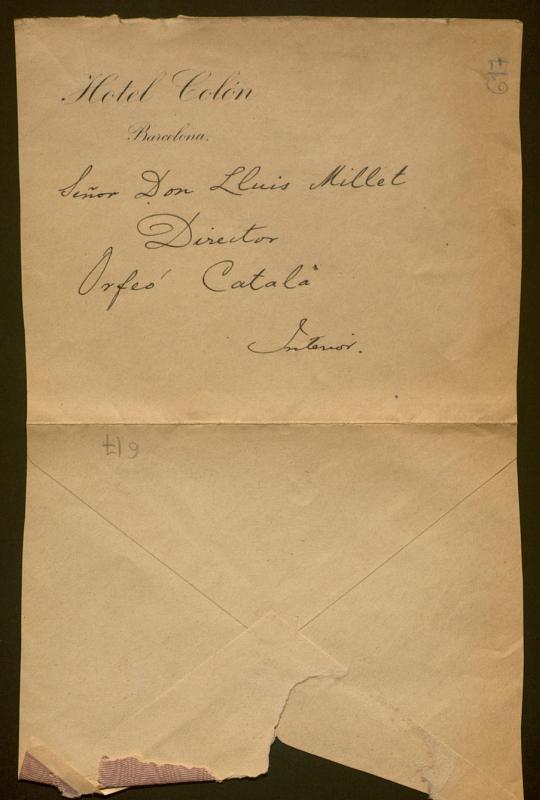 Hotel Colón
Barcelona.
617
Señor Don Lluis Millet
Director
Orfeó Català
Interior.
617